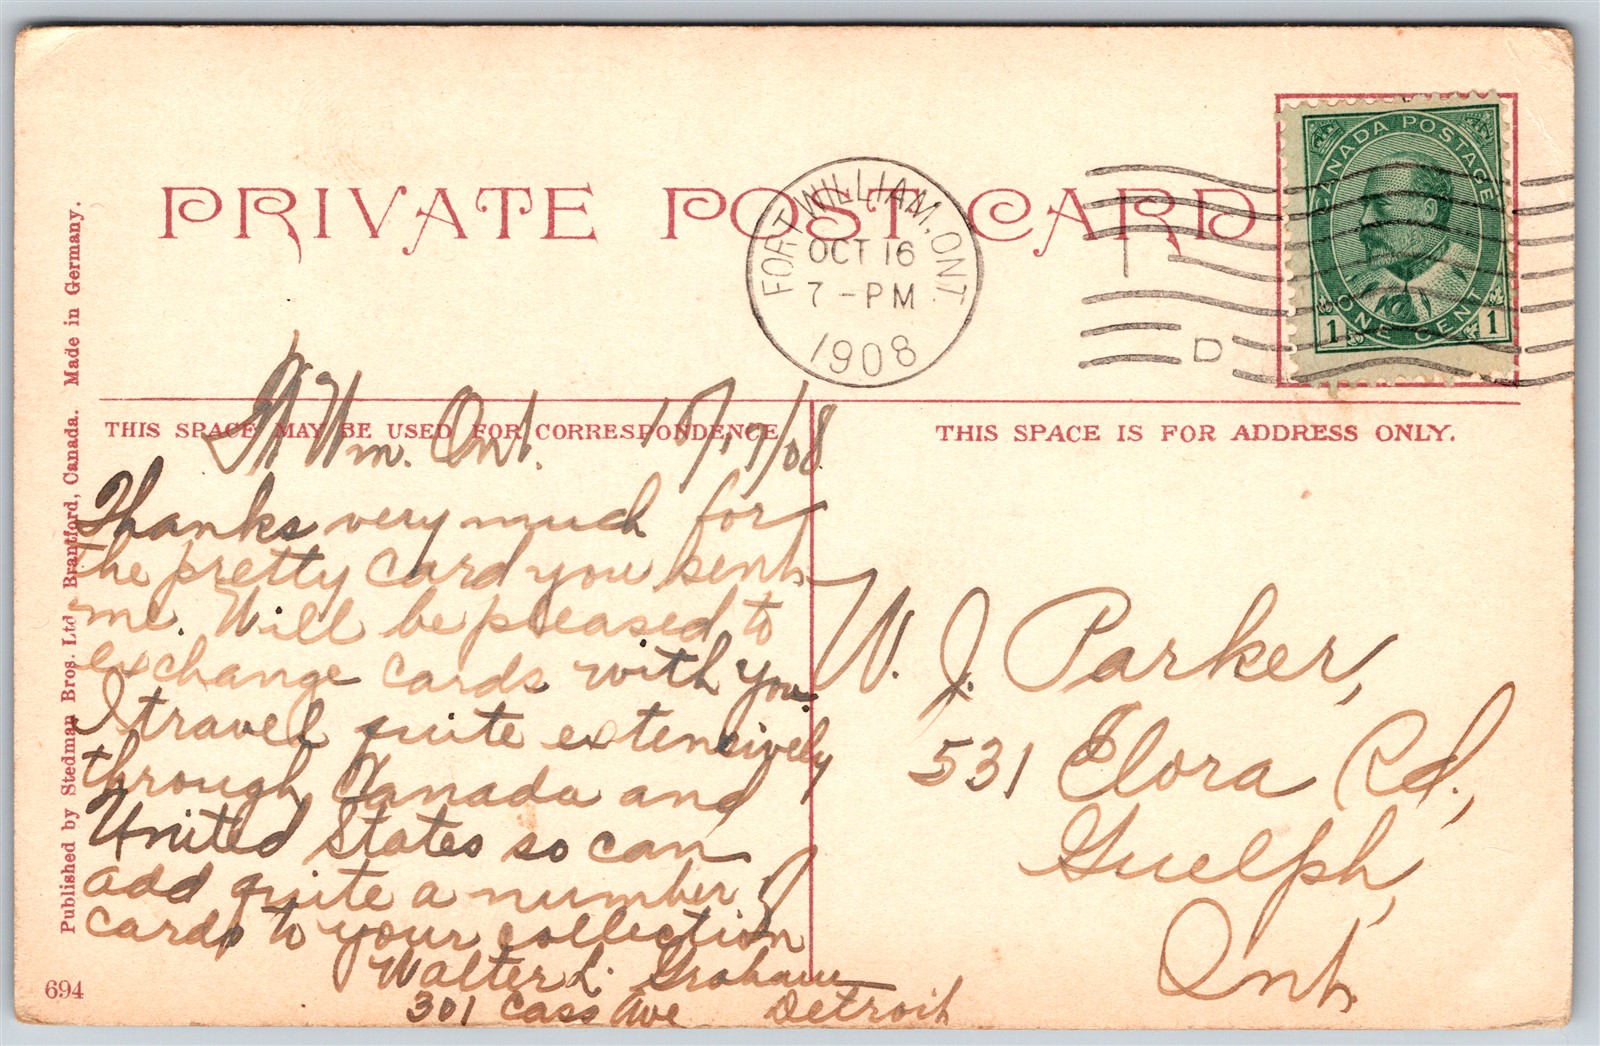 PRIVATE POST CARD
FORT WILLIAM, ONT.
OCT 16
7 - PM
1908
D
CANADA POSTAGE
1 ONE CENT 1
THIS SPACE MAY BE USED FOR CORRESPONDENCE
THIS SPACE IS FOR ADDRESS ONLY.
Ft Wm. Ont. 10/17/08
Thanks very much for
the pretty card you sent
me. Will be pleased to
exchange cards with you.
I travel quite extensively
through Canada and
United States so can
add quite a number of
cards to your collection
Walter L. Graham
301 Cass Ave Detroit
W. J. Parker,
531 Elora Rd.,
Guelph,
Ont.
Published by Stedman Bros. Ltd Brantford, Canada. Made in Germany.
694